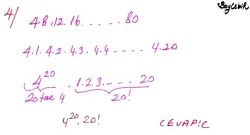 4/ 4.8.12.16.....80
4.1.4.2.4.3.4.4.....4.20
4^20 . 1.2.3.....20
20 tane 4 20!
4^20 . 20! CEVAP: C